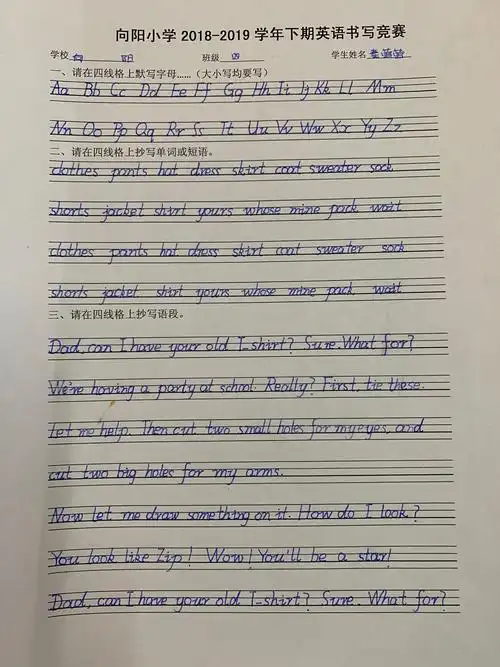 向阳小学 2018-2019 学年下期英语书写竞赛
学校 向 阳 班级 四 学生姓名
一、请在四线格上默写字母……（大小写均要写）
Aa Bb Cc Dd Ee Ff Gg Hh Ii Jj Kk Ll Mm
Nn Oo Pp Qq Rr Ss Tt Uu Vv Ww Xx Yy Zz
二、请在四线格上抄写单词或短语。
clothes pants hat dress skirt coat sweater sock
shorts jacket shirt yours whose mine pack wait
clothes pants hat dress skirt coat sweater sock
shorts jacket shirt yours whose mine pack wait
三、请在四线格上抄写语段。
Dad, can I have your old T-shirt? Sure. What for?
We're having a party at school. Really? First, tie these.
let me help. Then cut two small holes for my eyes, and
cut two big holes for my arms.
Now let me draw something on it. How do I look?
You look like Zip! Wow! You'll be a star!
Dad, can I have your old T-shirt? Sure. What for?